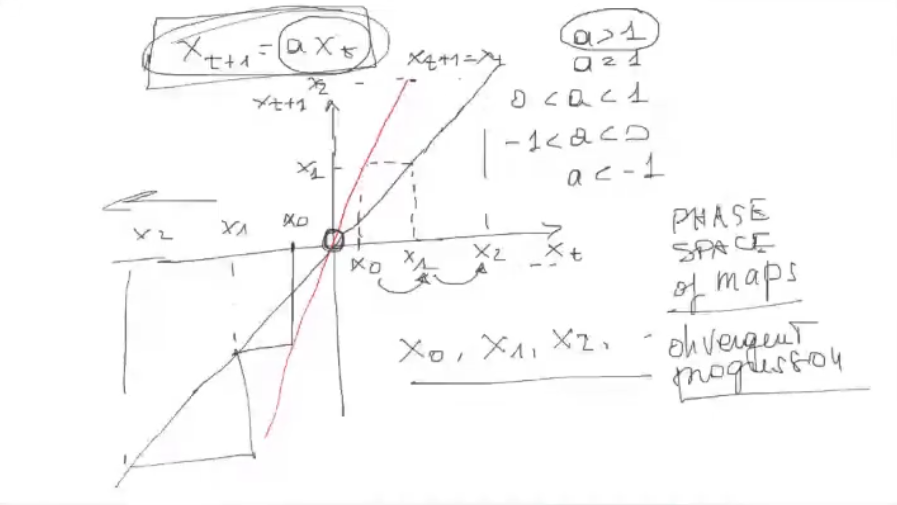 x_{t+1} = a x_t
a > 1
a = 1
0 < a < 1
-1 < a < 0
a < -1
x_{t+1} = x_t
x_2
x_{t+1}
x_1
x_2 x_1 x_0
x_0 x_1 x_2 x_t
PHASE
SPACE
of maps
x_0, x_1, x_2, ..
divergent
progression